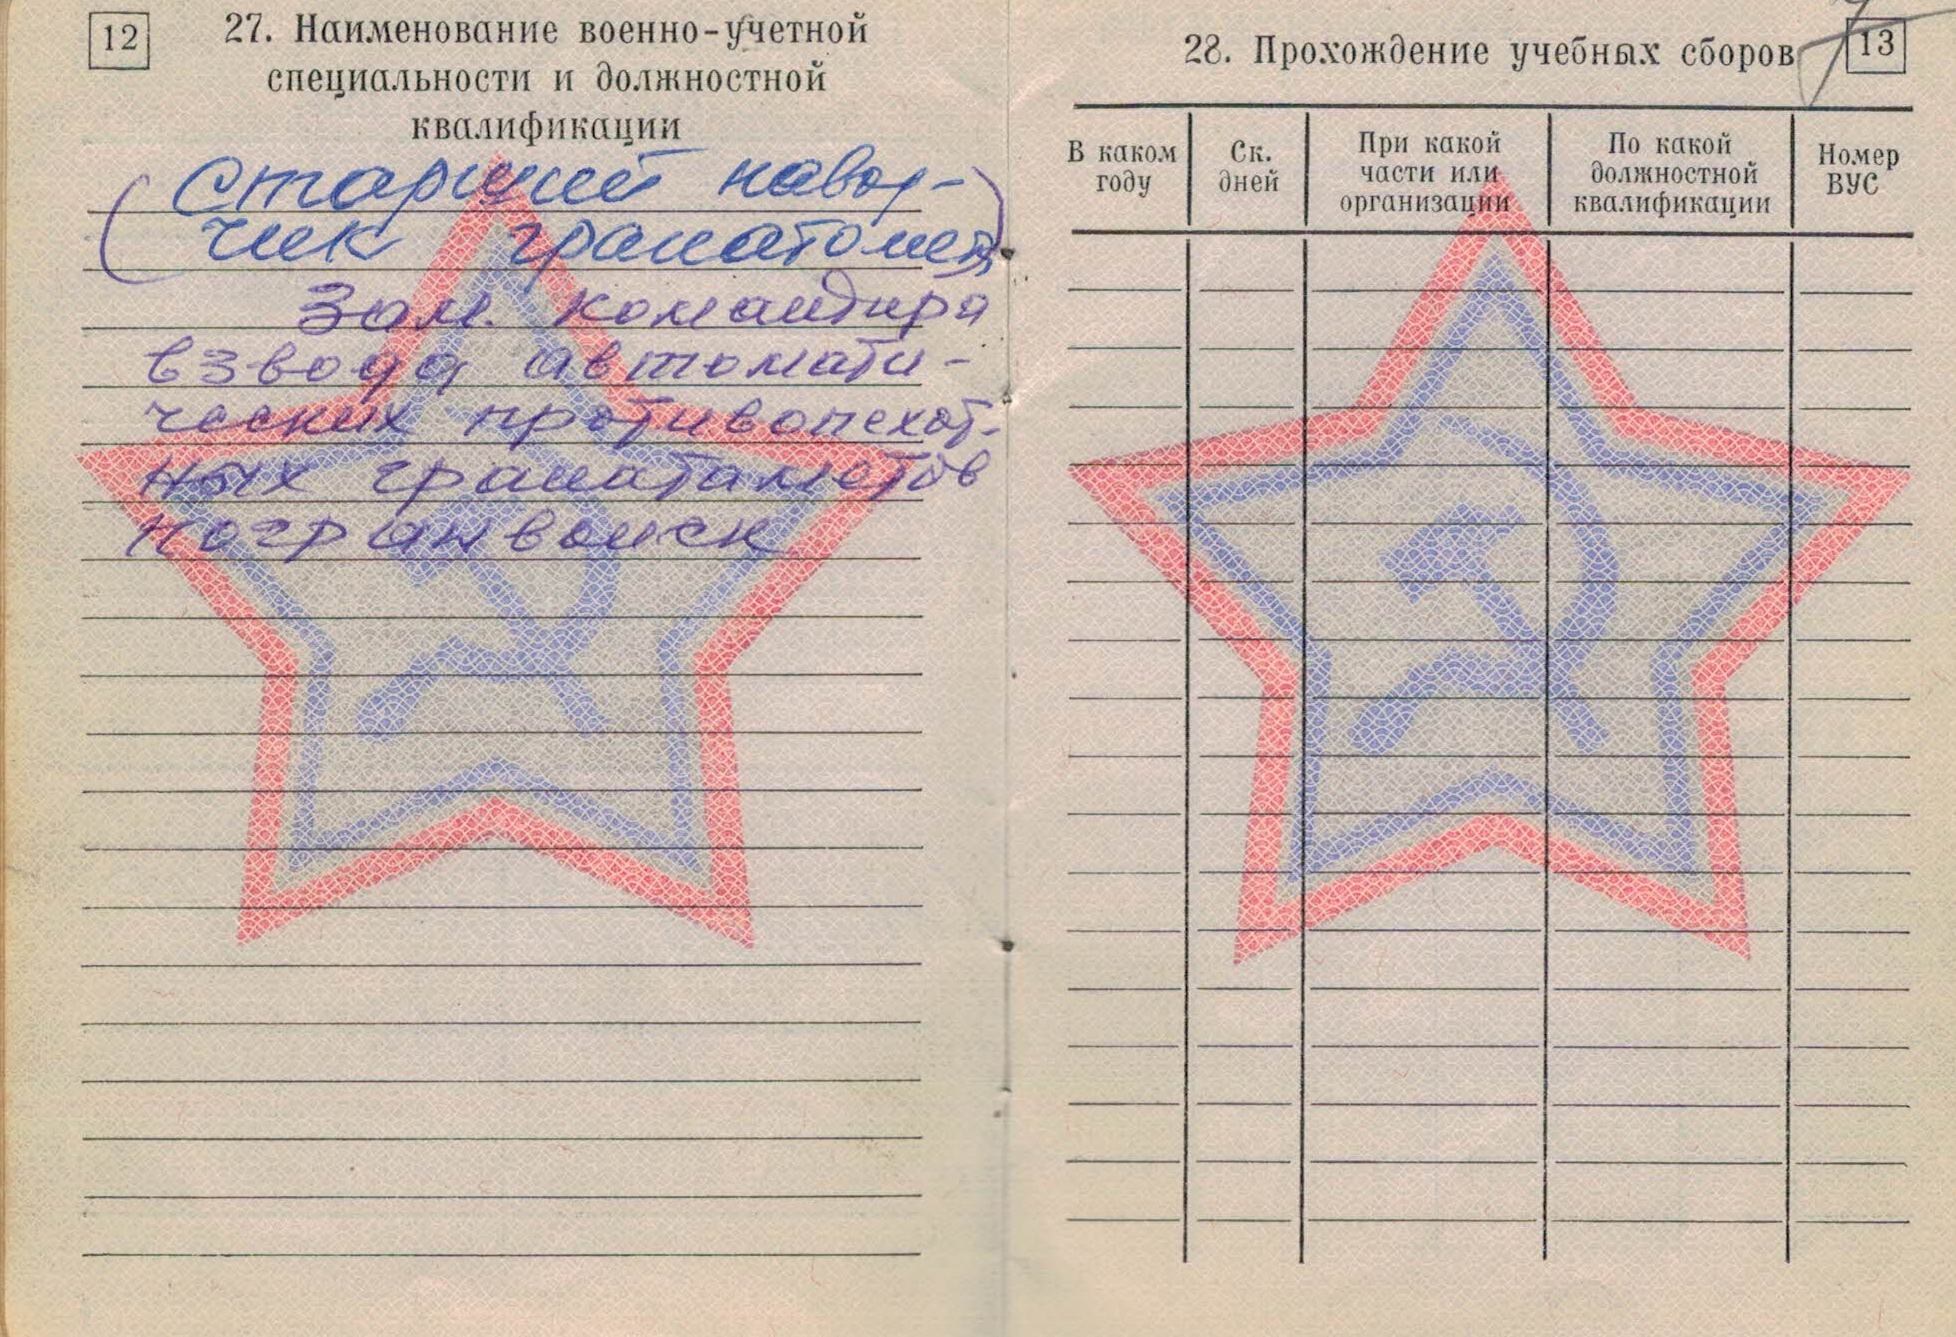 12
27. Наименование военно-учетной
специальности и должностной
квалификации
(Старший навод-
чик гранатомета)
Зам. командира
взвода автомати-
ческих противопехот-
ных гранатаметов
погранвойск
7
13
28. Прохождение учебных сборов
В каком
году
Ск.
дней
При какой
части или
организации
По какой
должностной
квалификации
Номер
ВУС